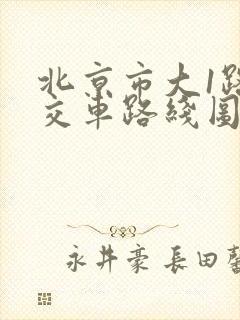 北京市大1路
交車路綫圖
永井豪 長田馨